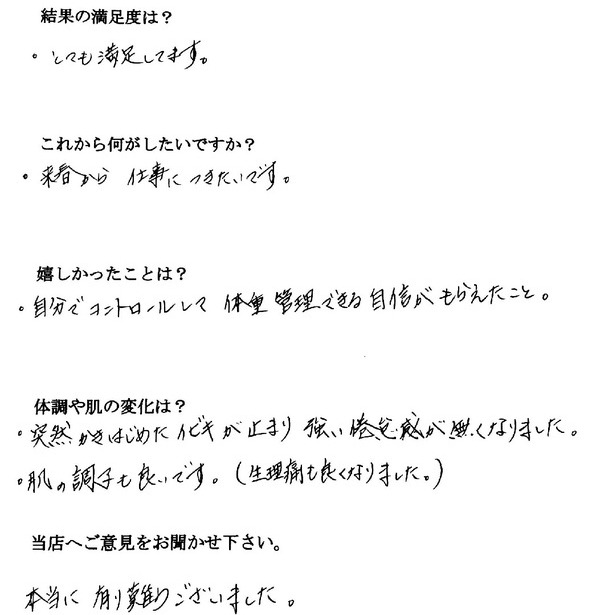 結果の満足度は？
・とても満足してます。
これから何がしたいですか？
・来春から 仕事につきたいです。
嬉しかったことは？
・自分でコントロールして 体重管理できる自信がもらえたこと。
体調や肌の変化は？
・突然かきはじめたイビキが止まり 強い倦怠感が無くなりました。
・肌の調子も良いです。（生理痛も良くなりました。）
当店へご意見をお聞かせ下さい。
本当に有り難うございました。